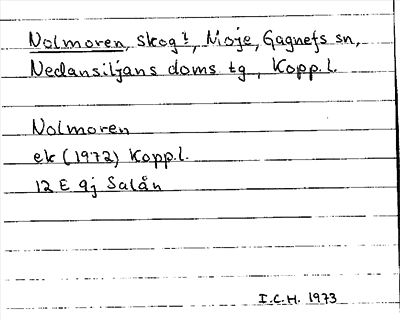 Nolmoren, skog?, Moje, Gagnefs sn,
Nedansiljans doms tg, Kopp.l.
Nolmoren
ek (1972) Kopp.l.
12 E 9j Salån
I.C.H. 1973